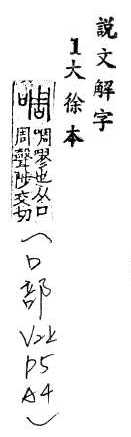 説文解字
1大徐本
啁 啁嘐也从口
周聲陟交切
(口部
P5
A4)